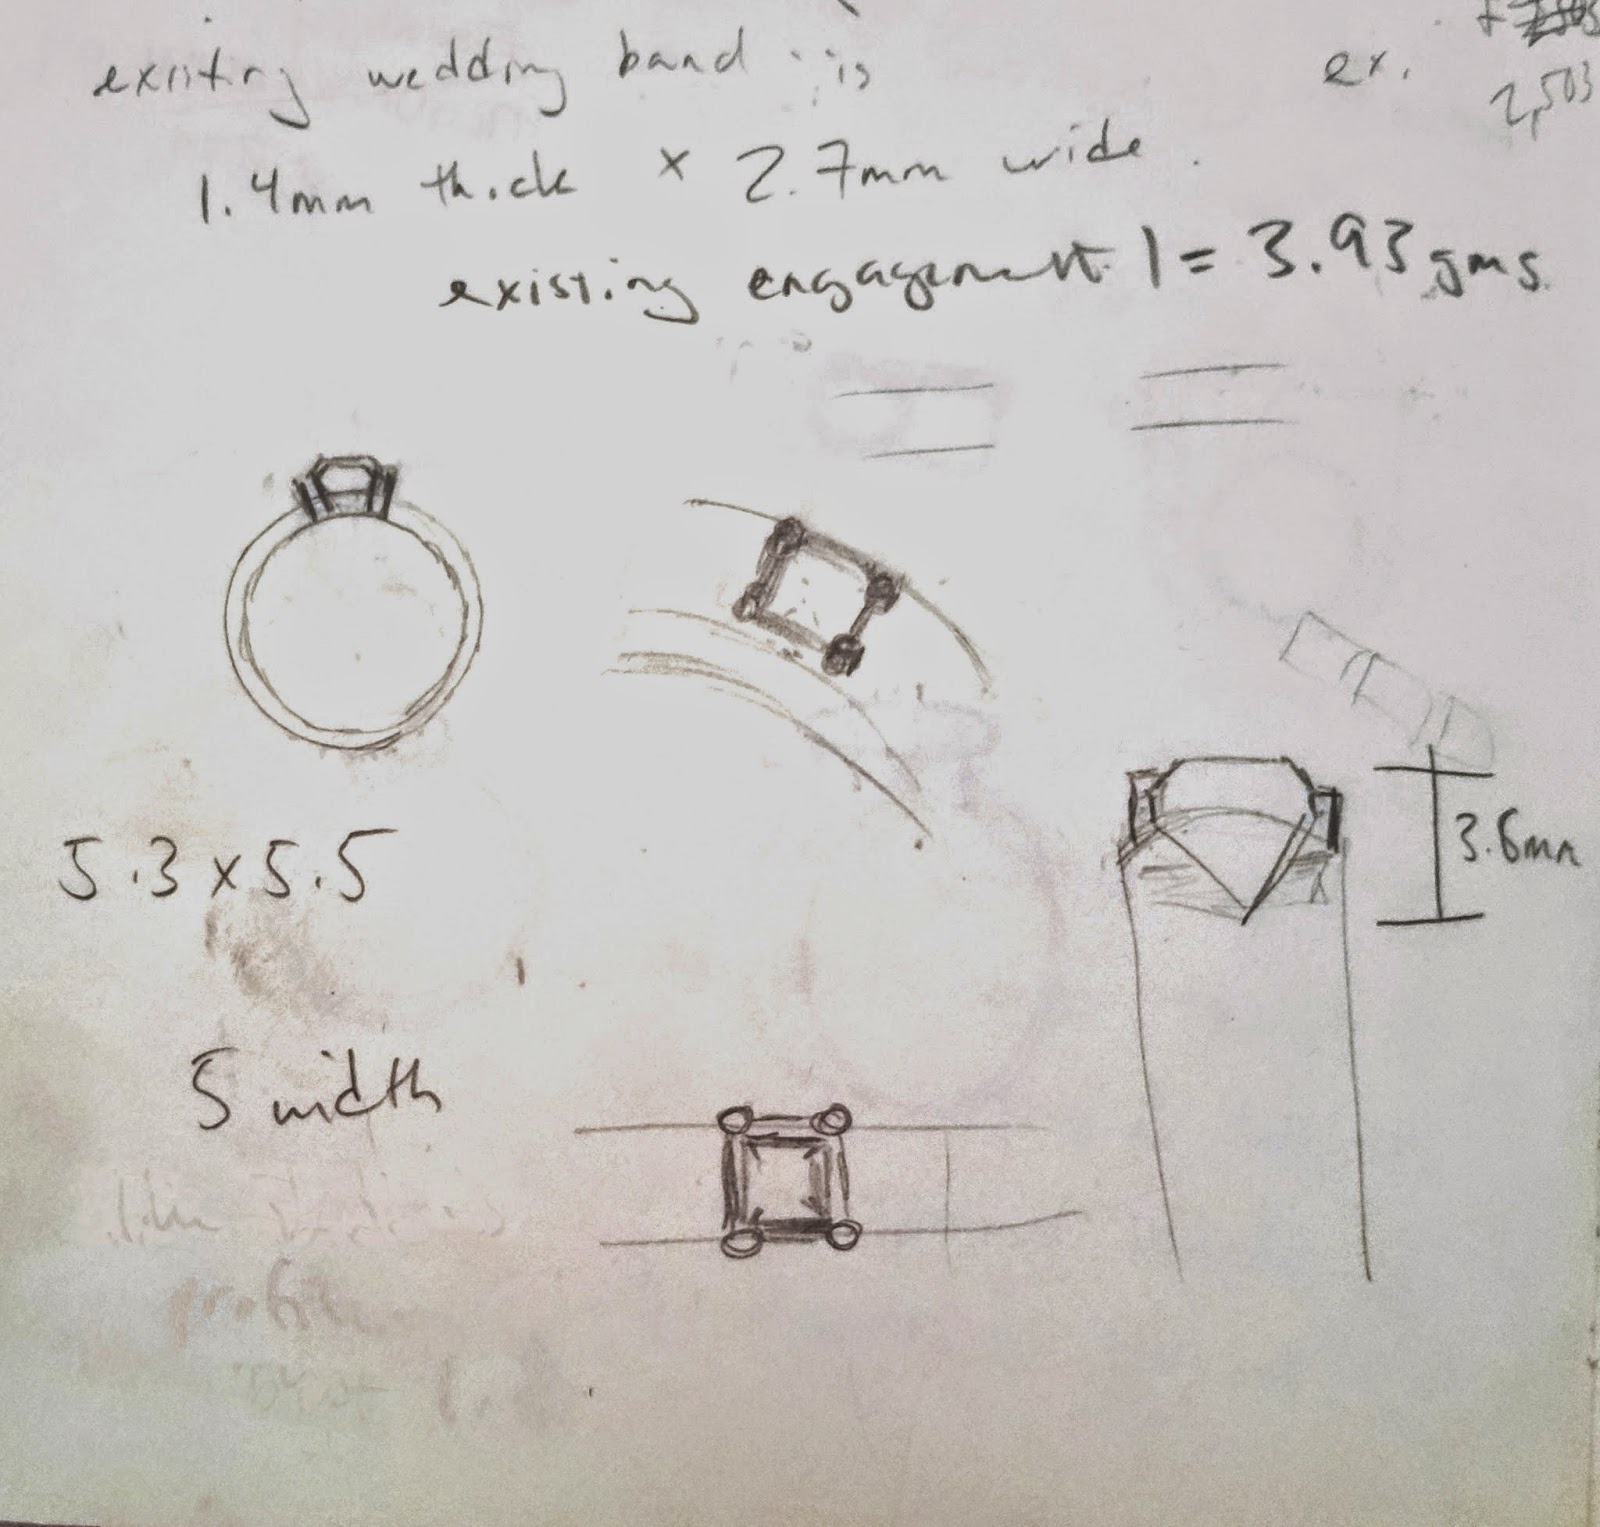 existing wedding band is
ex.
2,503
1.4mm thick x 2.7mm wide.
existing engagement 1 = 3.93 gms
3.6mm
5.3 x 5.5
5 width